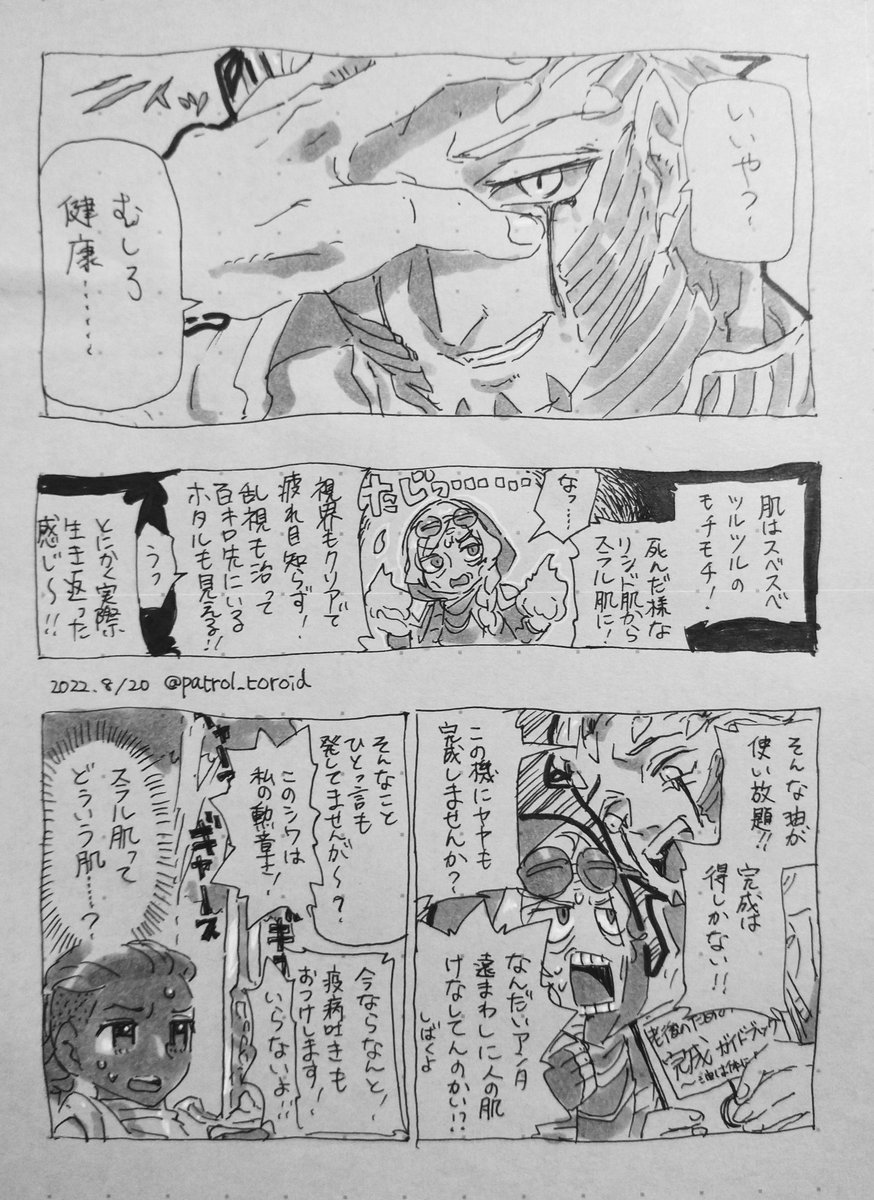 いいやっ〜
むしろ
健康……〜
肌はスベスベ
ツルツルの
モチモチ!
死んだ様な
リンド肌から
スラル肌に!
なっ……
たじっ………
視界もクリアで
疲れ目知らず!
乱視も治って
百キロ先にいる
ホタルも見える!!
うっ
とにかく実際
生き返った
感じ〜!!
2022.8/20 @patrol_toroid
そんな油が
使い放題!!
完成は
得しかない!!
この機にヤヤも
完成しませんか?
老後のための
完成ガイドブック
〜油は体に〜
なんだいアンタ
遠まわしに人の肌
けなしてんのかい!?
しばくよ
そんなこと
ひとっ言も
発してませんが〜?
このシワは
私の勲章さ!
今ならなんと!
疫病吐きも
おつけします!
いらないよ!!
ギャース
スラル肌って
どういう肌……?